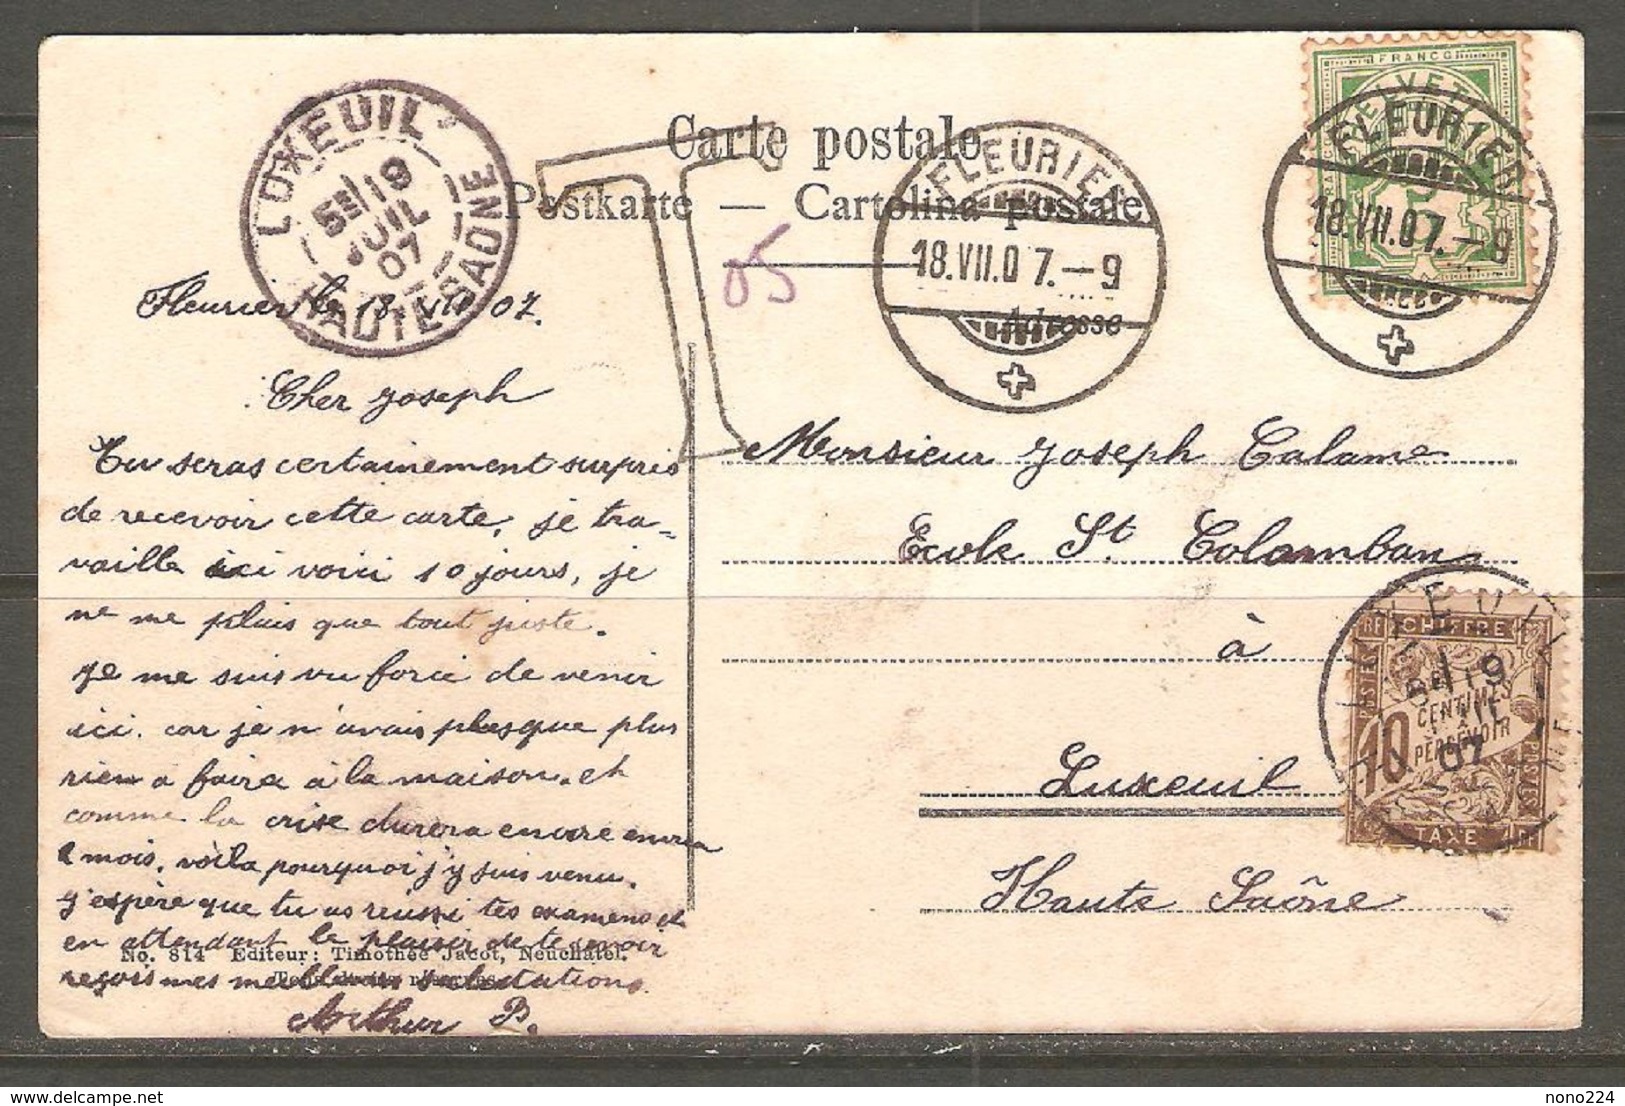 Carte postale
Postkarte — Cartolina postale
Adresse
FRANCO
HELVETIA
FLEURIER
18.VII.07.–9
FLEURIER
18.VII.07.–9
LUXEUIL
5E/19
JUIL
07
HAUTE-SAONE
T
05
Fleurier le 18. VII 07.
Cher Joseph
Tu seras certainement surpris
de recevoir cette carte, je tra-
vaille ici voici 10 jours, je
ne me plais que tout juste.
Je me suis vu force de venir
ici. car je n'avais plusque plus
rien a faire à la maison. et
comme la crise durera encore
2 mois, voila pourquoi j'y suis venu.
J'espère que tu as reussi tes examens et
en attendant le plaisir de te revoir
reçois mes meilleures salutations.
Arthur B.
No. 814 Editeur: Timothée Jacot, Neuchâtel.
Tous droits réservés
Monsieur Joseph Calame
Ecole St. Colomban
à
Luxeuil
Haute Saône
RF CHIFFRE
POSTES
10 CENTIMES
À
PERCEVOIR
POSTES
TAXE RF
19
07
nono224